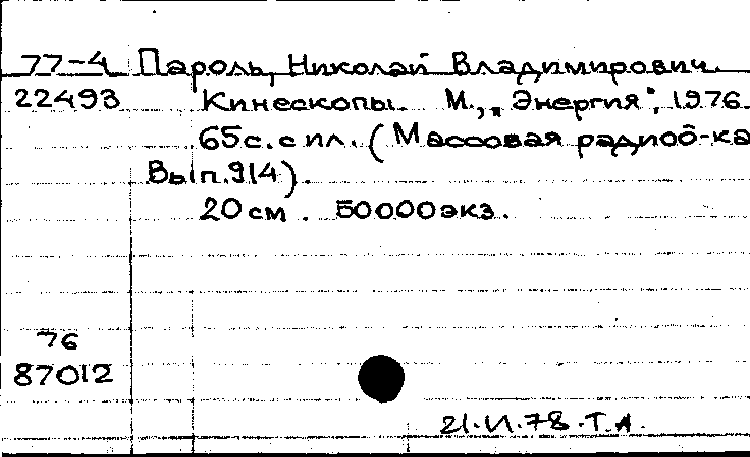 77-4 Пароль, Николай Владимирович.
22493 Кинескопы. М., „Энергия", 1976.
65 с. с ил. (Массовая радиоб-ка
Вып. 914).
20 см. 50000 экз.
76
87012
21.VI.78.Т.А.